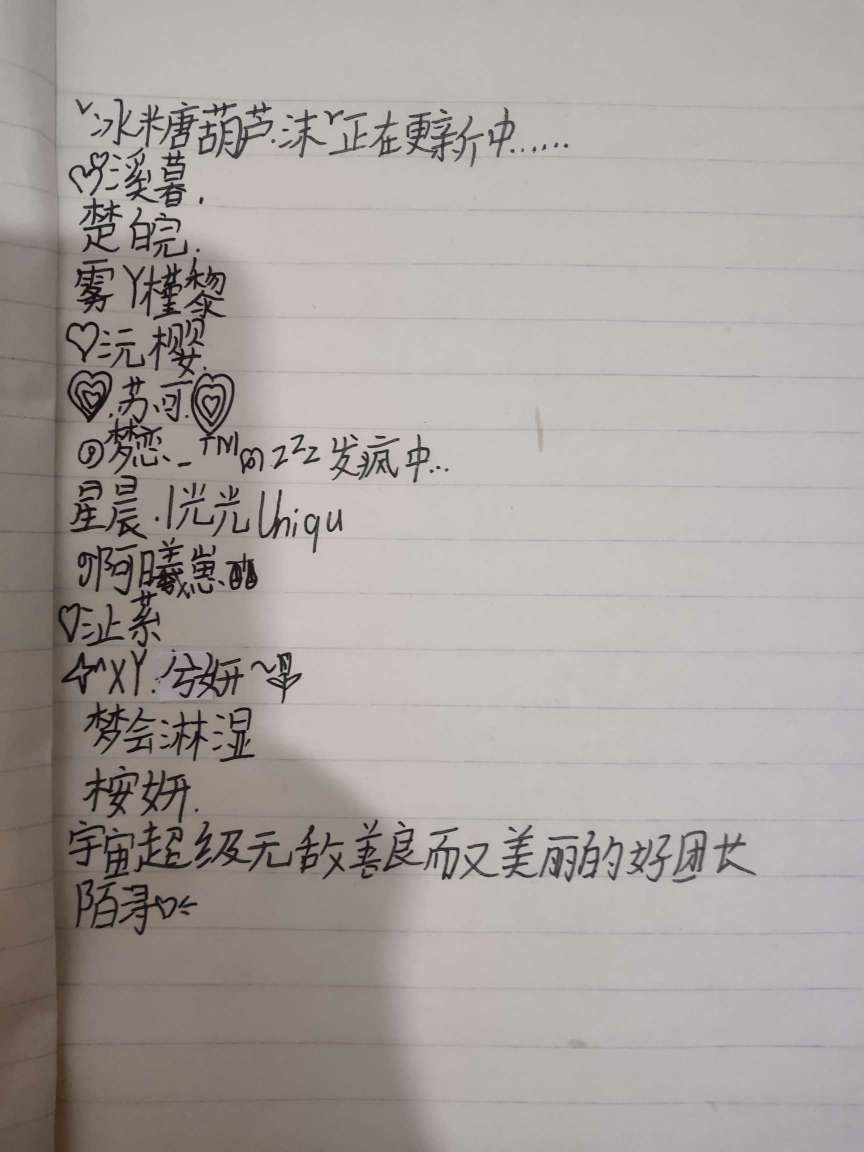 ˇ冰糖葫芦.沫ˇ正在更新中......
♡溪暮.
楚皖.
雾丫槿黎
♡沅樱.
♡.苏可.♡
梦恋、_™ zzz发疯中...
星晨.光光Uniqu
啊曦崽.
♡沚萦
☆^XY.兮妍~
梦会淋湿
桉妍.
宇宙超级无敌善良而又美丽的好团长
陌寻♡